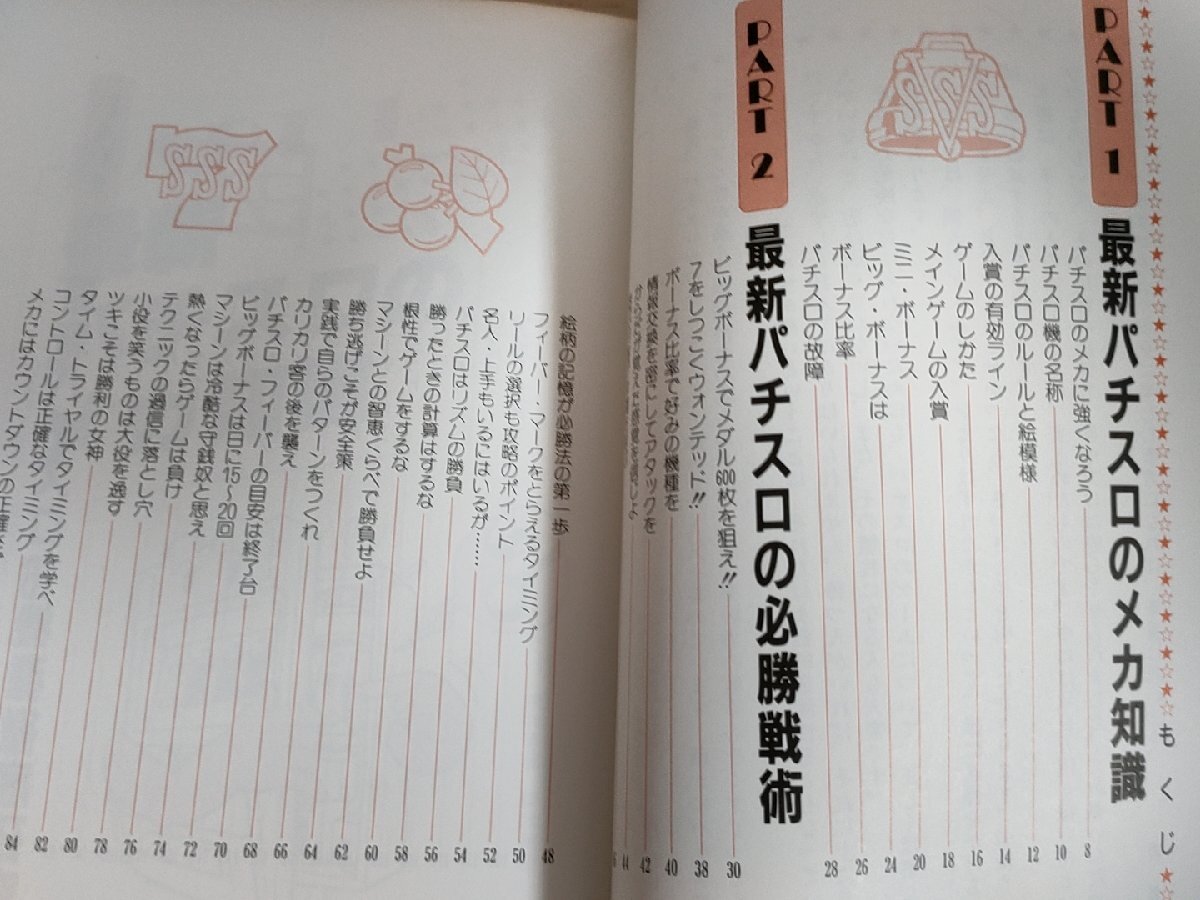 もくじ
PART 1
最新パチスロのメカ知識
パチスロのメカに強くなろう 8
パチスロ機の名称 10
パチスロのルールと絵模様 12
入賞の有効ライン 14
ゲームのしかた 16
メインゲームの入賞 18
ミニ・ボーナス 20
ビッグ・ボーナスは 24
ボーナス比率 26
パチスロの故障 28
PART 2
最新パチスロの必勝戦術
ビッグボーナスでメダル600枚を狙え!! 30
7をしつこくウォンテッド!! 38
ボーナス比率で好みの機種を 40
情報交換を密にしてアタックを 42
44
絵柄の記憶が必勝法の第一歩 48
フィーバー・マークをとらえるタイミング 50
リールの選択も攻略のポイント 52
名人、上手もいるにはいるが…… 54
パチスロはリズムの勝負 56
勝ったときの計算はするな 58
根性でゲームをするな 60
マシーンとの智恵くらべで勝負せよ 62
勝ち逃げこそが安全策 64
実践で自らのパターンをつくれ 66
カリカリ客の後を襲え 68
パチスロ・フィーバーの目安は終了台 70
ビッグボーナスは日に15〜20回 72
マシーンは冷酷な守銭奴と思え 74
熱くなったらゲームは負け 76
テクニックの過信に落とし穴 78
小役を笑うものは大役を逸す 80
ツキこそは勝利の女神 82
タイム・トライヤルでタイミングを学べ 84
コントロールは正確なタイミング
メカにはカウントダウンの正確さ
SSS
SSS